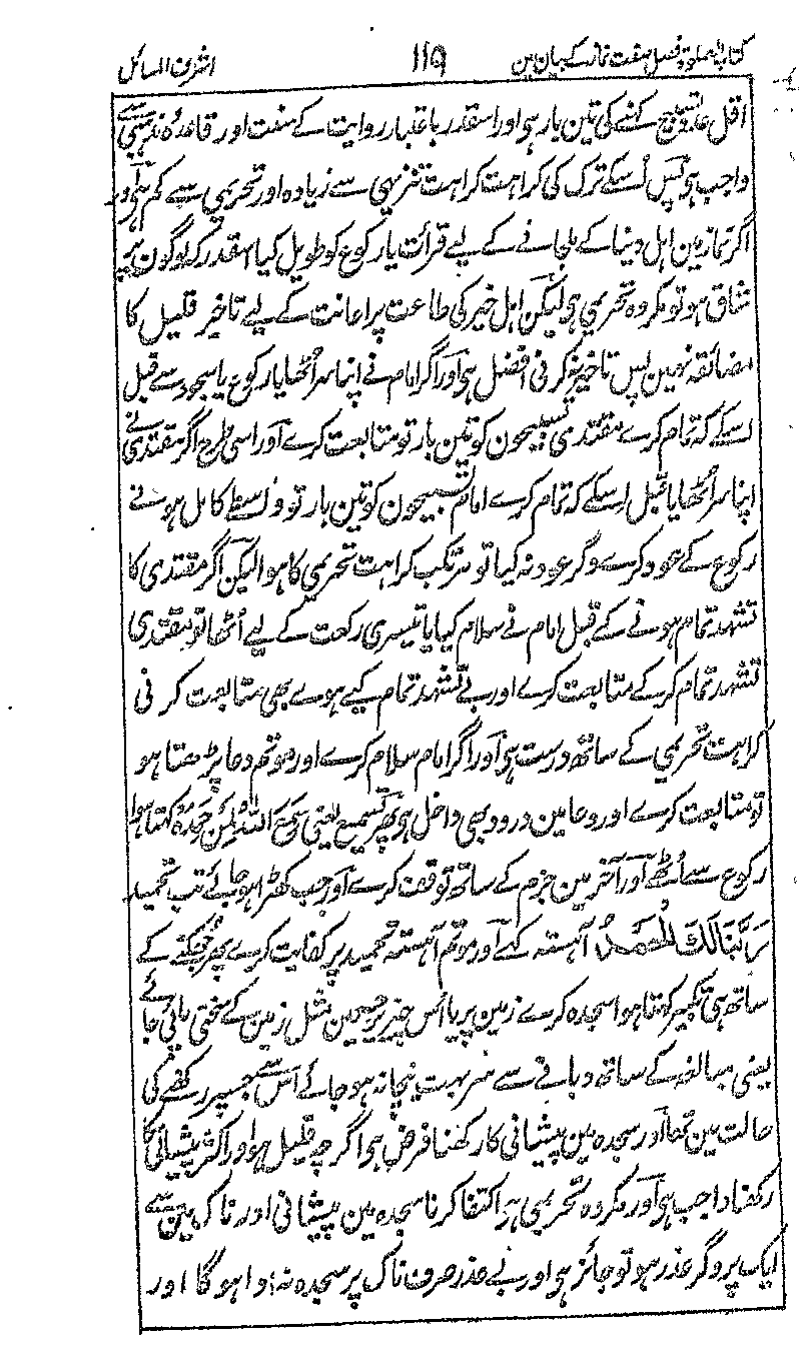 کتاب الصلوة فصل صفت نماز کے بیان مین ۱۱۹ اشرف المسائل
اقل عدد تسبیح کہنے کی تین بار ہی اور اسقدر باعتبار روایت کے سنت اور قاعدہ مذہبی سے
واجب ہی پس اُسکے ترک کی کراہت کراہت تنزیہی سے زیادہ اور تحریمی سے کم ہی اور
اگر نماز مین اہل دنیا کے ملجانے کے لیے قرائت یا رکوع کو طویل کیا اسقدر کہ لوگون پر
شاق ہو تو مکروہ تحریمی ہی لیکن اہل خیر کی طاعت پر اعانت کے لیے تاخیر قلیل کا
مضائقہ نہین پس تاخیر نکرنی افضل ہی اور اگر امام نے اپنا سر اُٹھایا رکوع یا سجود سے قبل
اسکے کہ تمام کرے مقتدی تسبیحون کو تین بار تو متابعت کرے اور اسی طرح اگر مقتدی نے
اپنا سر اُٹھایا قبل اسکے کہ تمام کرے امام تسبیحون کو تین بار تو واسطے کامل ہونے
رکوع کے عود کرے وگر عود نہ کیا تو مرتکب کراہت تحریمی کا ہوا لیکن اگر مقتدی کا
تشہد تمام ہونے کے قبل امام نے سلام کیا یا تیسری رکعت کے لیے اُٹھا تو مقتدی
تشہد تمام کر کے متابعت کرے اور بے تشہد تمام کیے ہوے بھی متابعت کرنی
کراہت تحریمی کے ساتھ درست ہی اور اگر امام سلام کرے اور موتم دعا پڑھتا ہو
تو متابعت کرے اور دعا مین درود بھی داخل ہی پھر تسمیع یعنی سَمِعَ اللّٰهُ لِمَنْ حَمِدَهُ کہتا ہوا
رکوع سے اُٹھے اور آخر مین جزم کے ساتھ توقف کرے اور جب کھڑا ہو جائے تب تحمید
رَبَّنَا لَكَ الْحَمْدُ آہستہ کہے اور موتم آہستہ تحمید پر کفایت کرے پھر جھکنے کے
ساتھ ہی تکبیر کہتا ہوا سجدہ کرے زمین پر یا اُس چیز پر جسمین مثل زمین کے سختی پائی جائے
یعنی مبالغہ کے ساتھ دبانے سے سر بہت نیچا نہ ہو جائے اُس سے جسپر رکھنے کی
حالت مین تھا اور سجدہ مین پیشانی کا رکھنا فرض ہی اگرچہ قلیل ہو اور اکثر پیشانی کا
رکھنا واجب ہی اور مکروہ تحریمی ہی اکتفا کرنا سجدہ مین پیشانی اور ناک مین سے
ایک پر وگر عذر ہو تو جائز ہی اور بے عذر صرف ناک پر سجدہ نہ ادا ہو گا اور